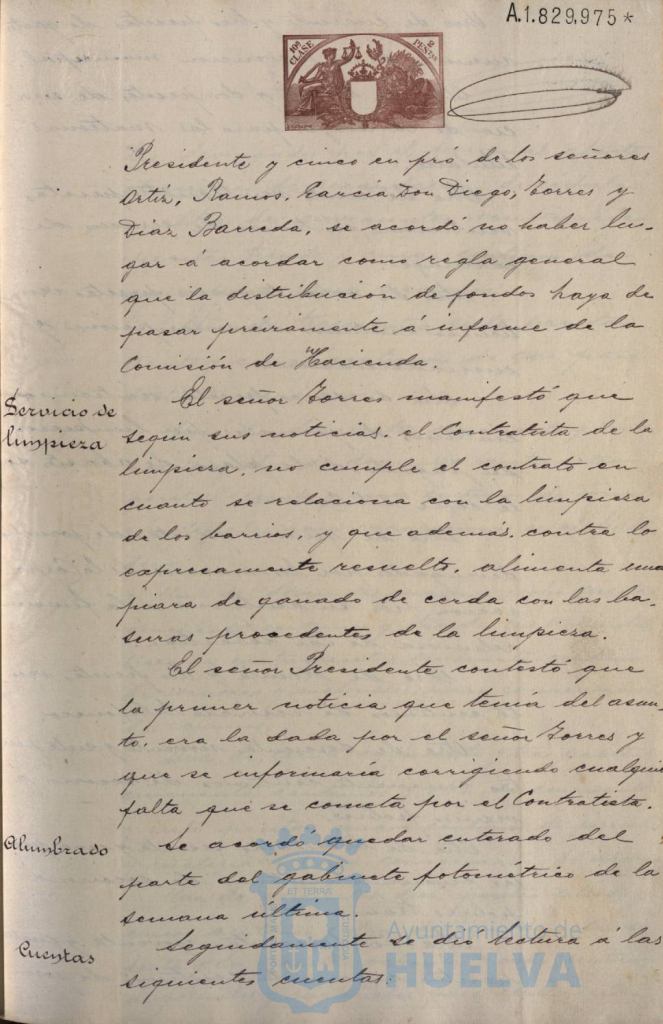 A.1.829,975*
10ª CLASE
2 PESETAS
Presidente y cinco en pró de los señores
Ortíz, Ramos, García Don Diego, Torres y
Díaz Barreda, se acordó no haber lu-
gar á acordar como regla general
que la distribución de fondos haya de
pasar préviamente á informe de la
Comisión de Hacienda.
Servicio de
limpieza
El señor Torres manifestó que
segun sus noticias, el Contratista de la
limpieza, no cumple el contrato en
cuanto se relaciona con la limpieza
de los barrios, y que además, contra lo
expresamente resuelto, alimenta una
piara de ganado de cerda con las ba-
suras procedentes de la limpieza.
El señor Presidente contestó que
la primer noticia que tenía del asun-
to, era la dada por el señor Torres y
que se informaría corrigiendo cualquier
falta que se cometa por el Contratista.
Alumbrado
Se acordó quedar enterado del
parte del gabinete fotométrico de la
semana última.
Cuentas
Seguidamente se dio lectura á las
siguientes cuentas:
Ayuntamiento de
HUELVA